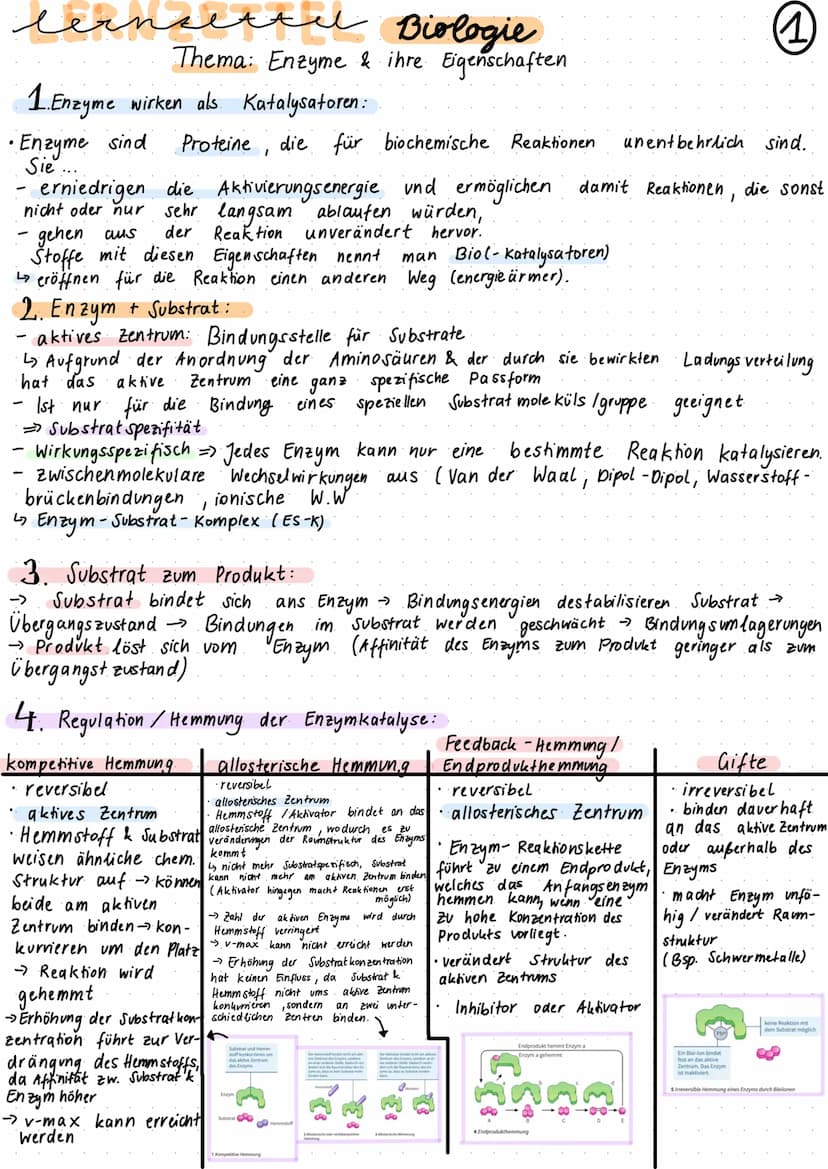 LERNZETTEL
lernzettel Biologie 1
Thema: Enzyme & ihre Eigenschaften
1. Enzyme wirken als Katalysatoren:
• Enzyme sind Proteine, die für biochemische Reaktionen unentbehrlich sind.
Sie ...
- erniedrigen die Aktivierungsenergie und ermöglichen damit Reaktionen, die sonst
nicht oder nur sehr langsam ablaufen würden,
- gehen aus der Reaktion unverändert hervor.
Stoffe mit diesen Eigenschaften nennt man Bio(-Katalysatoren)
↳ eröffnen für die Reaktion einen anderen Weg (energieärmer).
2. Enzym + Substrat:
- aktives Zentrum: Bindungsstelle für Substrate
↳ Aufgrund der Anordnung der Aminosäuren & der durch sie bewirkten Ladungsverteilung
hat das aktive Zentrum eine ganz spezifische Passform
- Ist nur für die Bindung eines speziellen Substratmoleküls/gruppe geeignet
⇒ Substratspezifität
- Wirkungsspezifisch ⇒ Jedes Enzym kann nur eine bestimmte Reaktion katalysieren.
- zwischenmolekulare Wechselwirkungen aus (Van der Waal, Dipol-Dipol, Wasserstoff-
brückenbindungen, ionische W.W
↳ Enzym-Substrat-Komplex (ES-K)
3. Substrat zum Produkt:
→ Substrat bindet sich ans Enzym → Bindungsenergien destabilisieren Substrat →
Übergangszustand → Bindungen im Substrat werden geschwächt → Bindungsumlagerungen
→ Produkt löst sich vom Enzym (Affinität des Enzyms zum Produkt geringer als zum
Übergangstzustand)
4. Regulation/Hemmung der Enzymkatalyse:
kompetitive Hemmung
• reversibel
• aktives Zentrum
• Hemmstoff & Substrat
weisen ähnliche chem.
Struktur auf → können
beide am aktiven
Zentrum binden → kon-
kurrieren um den Platz
→ Reaktion wird
gehemmt
→ Erhöhung der Substratkon-
zentration führt zur Ver-
drängung des Hemmstoffs,
da Affinität zw. Substrat &
Enzym höher
→ v-max kann erreicht
werden
allosterische Hemmung
• reversibel
• allosterisches Zentrum
• Hemmstoff/Aktivator bindet an das
allosterische Zentrum, wodurch es zu
veränderungen der Raumstruktur des Enzyms
kommt
↳ nicht mehr Substratspezifisch, Substrat
kann nicht mehr am aktiven Zentrum binden
(Aktivator hingegen macht Reaktionen erst
möglich)
→ Zahl der aktiven Enzyme wird durch
Hemmstoff verringert
→ v-max kann nicht erreicht werden
→ Erhöhung der Substratkonzentration
hat keinen Einfluss, da Substrat &
Hemmstoff nicht ums aktive Zentrum
konkurrieren, sondern an zwei unter-
schiedlichen Zentren binden.
Substrat und Hemm-
stoff konkurrieren um
das aktive Zentrum
des Enzyms.
Enzym
Substrat
Hemmstoff
1 Kompetitive Hemmung
Feedback-Hemmung/
Endprodukthemmung
• reversibel
• allosterisches Zentrum
• Enzym-Reaktionskette
führt zu einem Endprodukt,
welches das Anfangsenzym
hemmen kann, wenn eine
zu hohe Konzentration des
Produkts vorliegt.
• verändert Struktur des
aktiven Zentrums
• Inhibitor oder Aktivator
Endprodukt hemmt Enzym a
Enzym a gehemmt
a b c d
A B C D E
4 Endprodukthemmung
Gifte
• irreversibel
• binden dauerhaft
an das aktive Zentrum
oder außerhalb des
Enzyms
• macht Enzym unfä-
hig/verändert Raum-
struktur
(Bsp. Schwermetalle)
keine Reaktion mit
dem Substrat möglich
Ein Blei-Ion bindet
fest an das aktive
Zentrum. Das Enzym
ist inaktiviert.
5 Irreversible Hemmung eines Enzyms durch Bleiionen